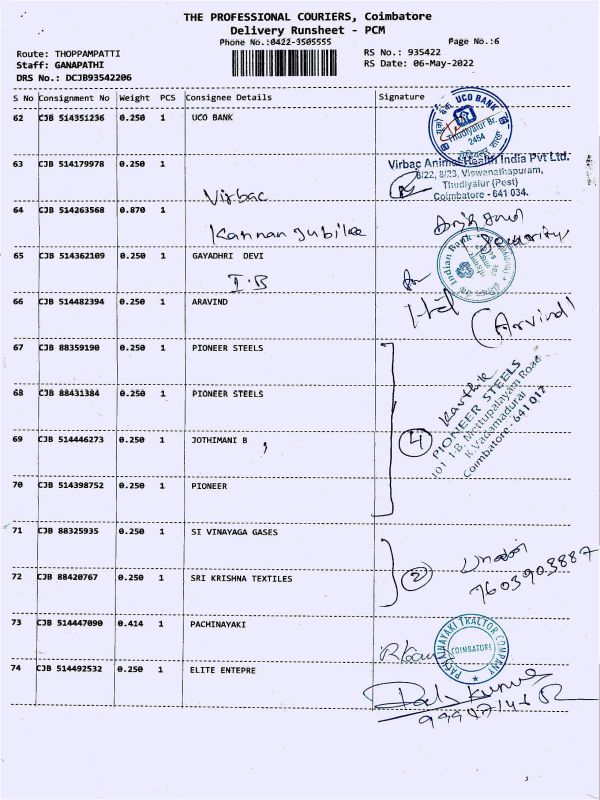 THE PROFESSIONAL COURIERS, Coimbatore
Delivery Runsheet - PCM
Phone No.:0422-3505555 Page No.:6
Route: THOPPAMPATTI RS No.: 935422
Staff: GANAPATHI RS Date: 06-May-2022
DRS No.: DCJB93542206
S No Consignment No Weight PCS Consignee Details Signature
62 CJB 514351236 0.250 1 UCO BANK
UCO BANK
Thudiyalur Br.
2454
63 CJB 514179978 0.250 1
Virbac
Virbac Animal Health India Pvt Ltd.
8/22, 8/23, Viswanathapuram,
Thudiyalur (Post)
Coimbatore - 641 034.
64 CJB 514263568 0.870 1
Kannan Jubilee
Security
65 CJB 514362109 0.250 1 GAYADHRI DEVI
I.B
Indian Bank
66 CJB 514482394 0.250 1 ARAVIND
(Arvind)
67 CJB 88359190 0.250 1 PIONEER STEELS
68 CJB 88431384 0.250 1 PIONEER STEELS
69 CJB 514446273 0.250 1 JOTHIMANI B
70 CJB 514398752 0.250 1 PIONEER
4
Karthik
PIONEER STEELS
101 I-B, Mettupalayam Road
K.Vadamadurai
Coimbatore - 641 017
71 CJB 88325935 0.250 1 SI VINAYAGA GASES
72 CJB 88420767 0.250 1 SRI KRISHNA TEXTILES
2
7603903887
73 CJB 514447090 0.414 1 PACHINAYAKI
PACHAINAYAKI TRACTOR COMPANY
COIMBATORE
74 CJB 514492532 0.250 1 ELITE ENTEPRE